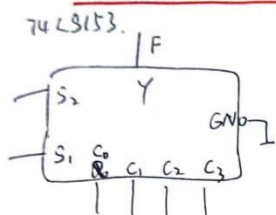 74LS153.
F
Y
S2
GND
S1
C0
C1 C2 C3